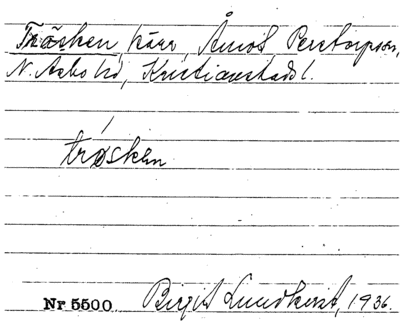 Träsken kärr, Åmot Perstorpssn,
N. Åsbo hd, Kristianstads l.
trøsken
Nr 5500 Birgit Lundkvist, 1936.